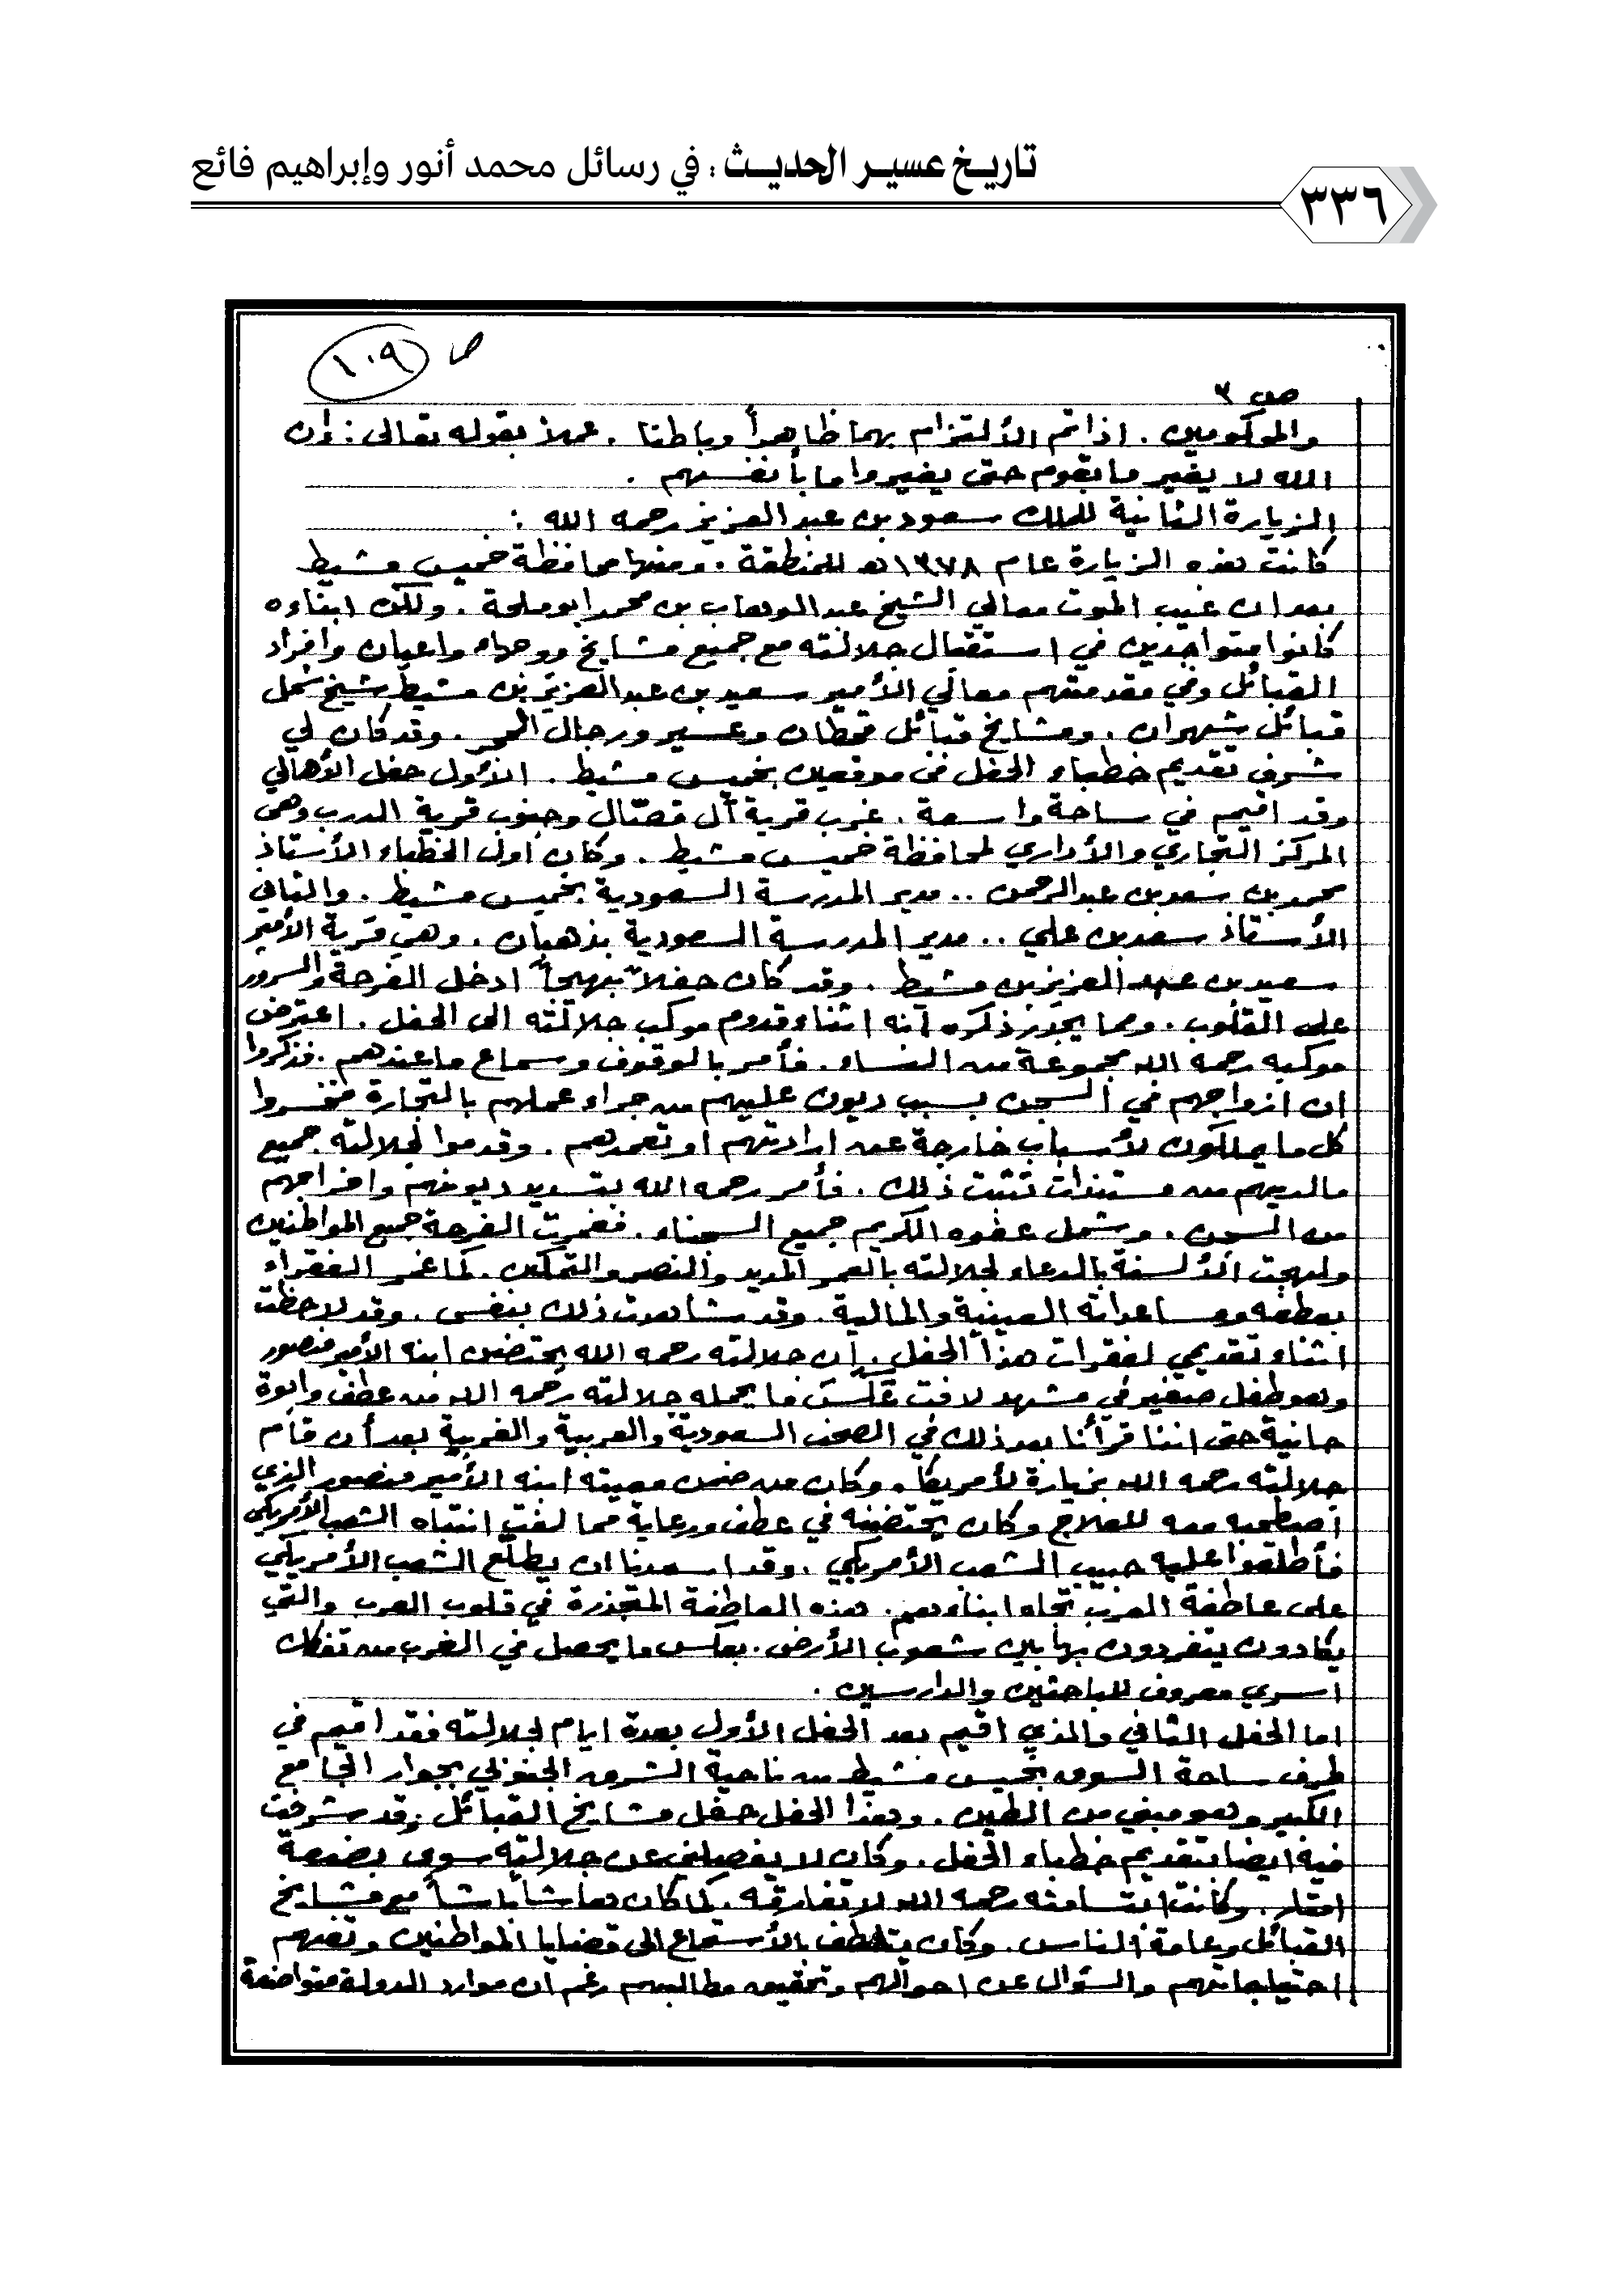 تاريخ عسير الحديث : في رسائل محمد أنور وإبراهيم فائع
٣٣٦
ص ١٠٩
ص ٣
والمحكومين . اذا تم الألتزام بهما ظاهراً وباطنا . عملاً بقوله تعالى : إن
الله لا يغير ما بقوم حتى يغيروا ما بأنفسهم .
الزيارة الثانية للملك سعود بن عبد العزيز رحمه الله :
كانت هذه الزيارة عام ١٣٧٨هـ للمنطقة . ومنها محافظة خميس مشيط
بعد ان غيب الموت معالي الشيخ عبد الوهاب بن محمد ابو ملحة . ولكن ابناءه
كانوا متواجدين في استقبال جلالته مع جميع مشايخ ووجهاء واعيان وافراد
القبائل وفي مقدمتهم معالي الأمير سعيد بن عبد العزيز بن مشيط شيخ شمل
قبائل شهران . ومشايخ قبائل قحطان وعسير ورجال الحجر . وقد كان لي
شرف تقديم خطباء الحفل في موقعين بخميس مشيط . الأول حفل الأهالي
وقد اقيم في ساحة واسعة . غرب قرية آل قصّال وجنوب قرية الدرب وهى
المركز التجاري والأداري لمحافظة خميس مشيط . وكان اول الخطباء الأستاذ
محمد بن سعد بن عبد الرحمن .. مدير المدرسة السعودية بخميس مشيط . والثاني
الأستاذ سعد بن علي .. مدير المدرسة السعودية بذهبان . وهي قرية الأمير
سعيد بن عبد العزيز بن مشيط . وقد كان حفلاً بهيجاً ادخل الفرحة والسرور
على القلوب . ومما يجدر ذكره أنه اثناء قدوم موكب جلالته الى الحفل . اعترض
موكبه رحمه الله مجموعة من النساء . فأمر بالوقوف وسماع ما عندهم . فذكروا
ان ازواجهم في السجن بسبب ديون عليهم من جراء عملهم بالتجارة فخسروا
كل ما يملكون لأسباب خارجة عن ارادتهم او تعمدهم . وقدموا لجلالته جميع
مالديهم من مستندات تثبت ذلك . فأمر رحمه الله بتسديد ديونهم واخراجهم
من السجن . وشمل عفوه الكريم جميع السجناء . فغمرت الفرحة جميع المواطنين
ولهجت الألسنة بالدعاء لجلالته بالعمر المديد والنصر والتمكين . كما غمر الفقراء
بعطفه ومساعداته العينية والمالية . وقد شاهدت ذلك بنفسى . وقد لاحظت
اثناء تقديمي لفقرات هذا الحفل . أن جلالته رحمه الله يحتضن ابنه الأمير منصور
وهو طفل صغير في مشهد لافت عكس ما يحمله جلالته رحمه الله من عطف وابوة
حانية حتى اننا قرأنا بعد ذلك في الصحف السعودية والعربية والغربية بعد أن قام
جلالته رحمه الله بزيارة لأمريكا . وكان من ضمن معيته ابنه الأمير منصور الذي
اصطحبه معه للعلاج وكان يحتضنه في عطف ورعاية مما لفت انتباه الشعب الأمريكي
فأطلقوا عليه حبيب الشعب الأمريكي . وقد اسعدنا ان يطلّع الشعب الأمريكي
على عاطفة العرب تجاه ابناءهم . هذه العاطفة المتجذرة في قلوب العرب والتي
يكادون ينفردون بها بين شعوب الأرض . بعكس ما يحصل في الغرب من تفكك
اسري معروف للباحثين والدارسين .
اما الحفل الثاني والذي اقيم بعد الحفل الأول بعدة ايام لجلالته فقد اقيم في
طرف ساحة السوق بخميس مشيط من ناحية الشرق الجنوبي بجوار الجامع
الكبير وهو مبني من الطين . وهذا الحفل حفل مشايخ القبائل . وقد تشرفت
فيه ايضا بتقديم خطباء الحفل . وكان لا يفصلني عن جلالته سوى بضعة
امتار . وكانت ابتسامته رحمه الله لا تفارقه . كما كان هاشاً باشاً مع مشايخ
القبائل وعامة الناس . وكان يتلطف بالأستماع الى قضايا المواطنين وتفهم
احتياجاتهم والسؤال عن احوالهم وتحقيق مطالبهم رغم ان موارد الدولة متواضعة